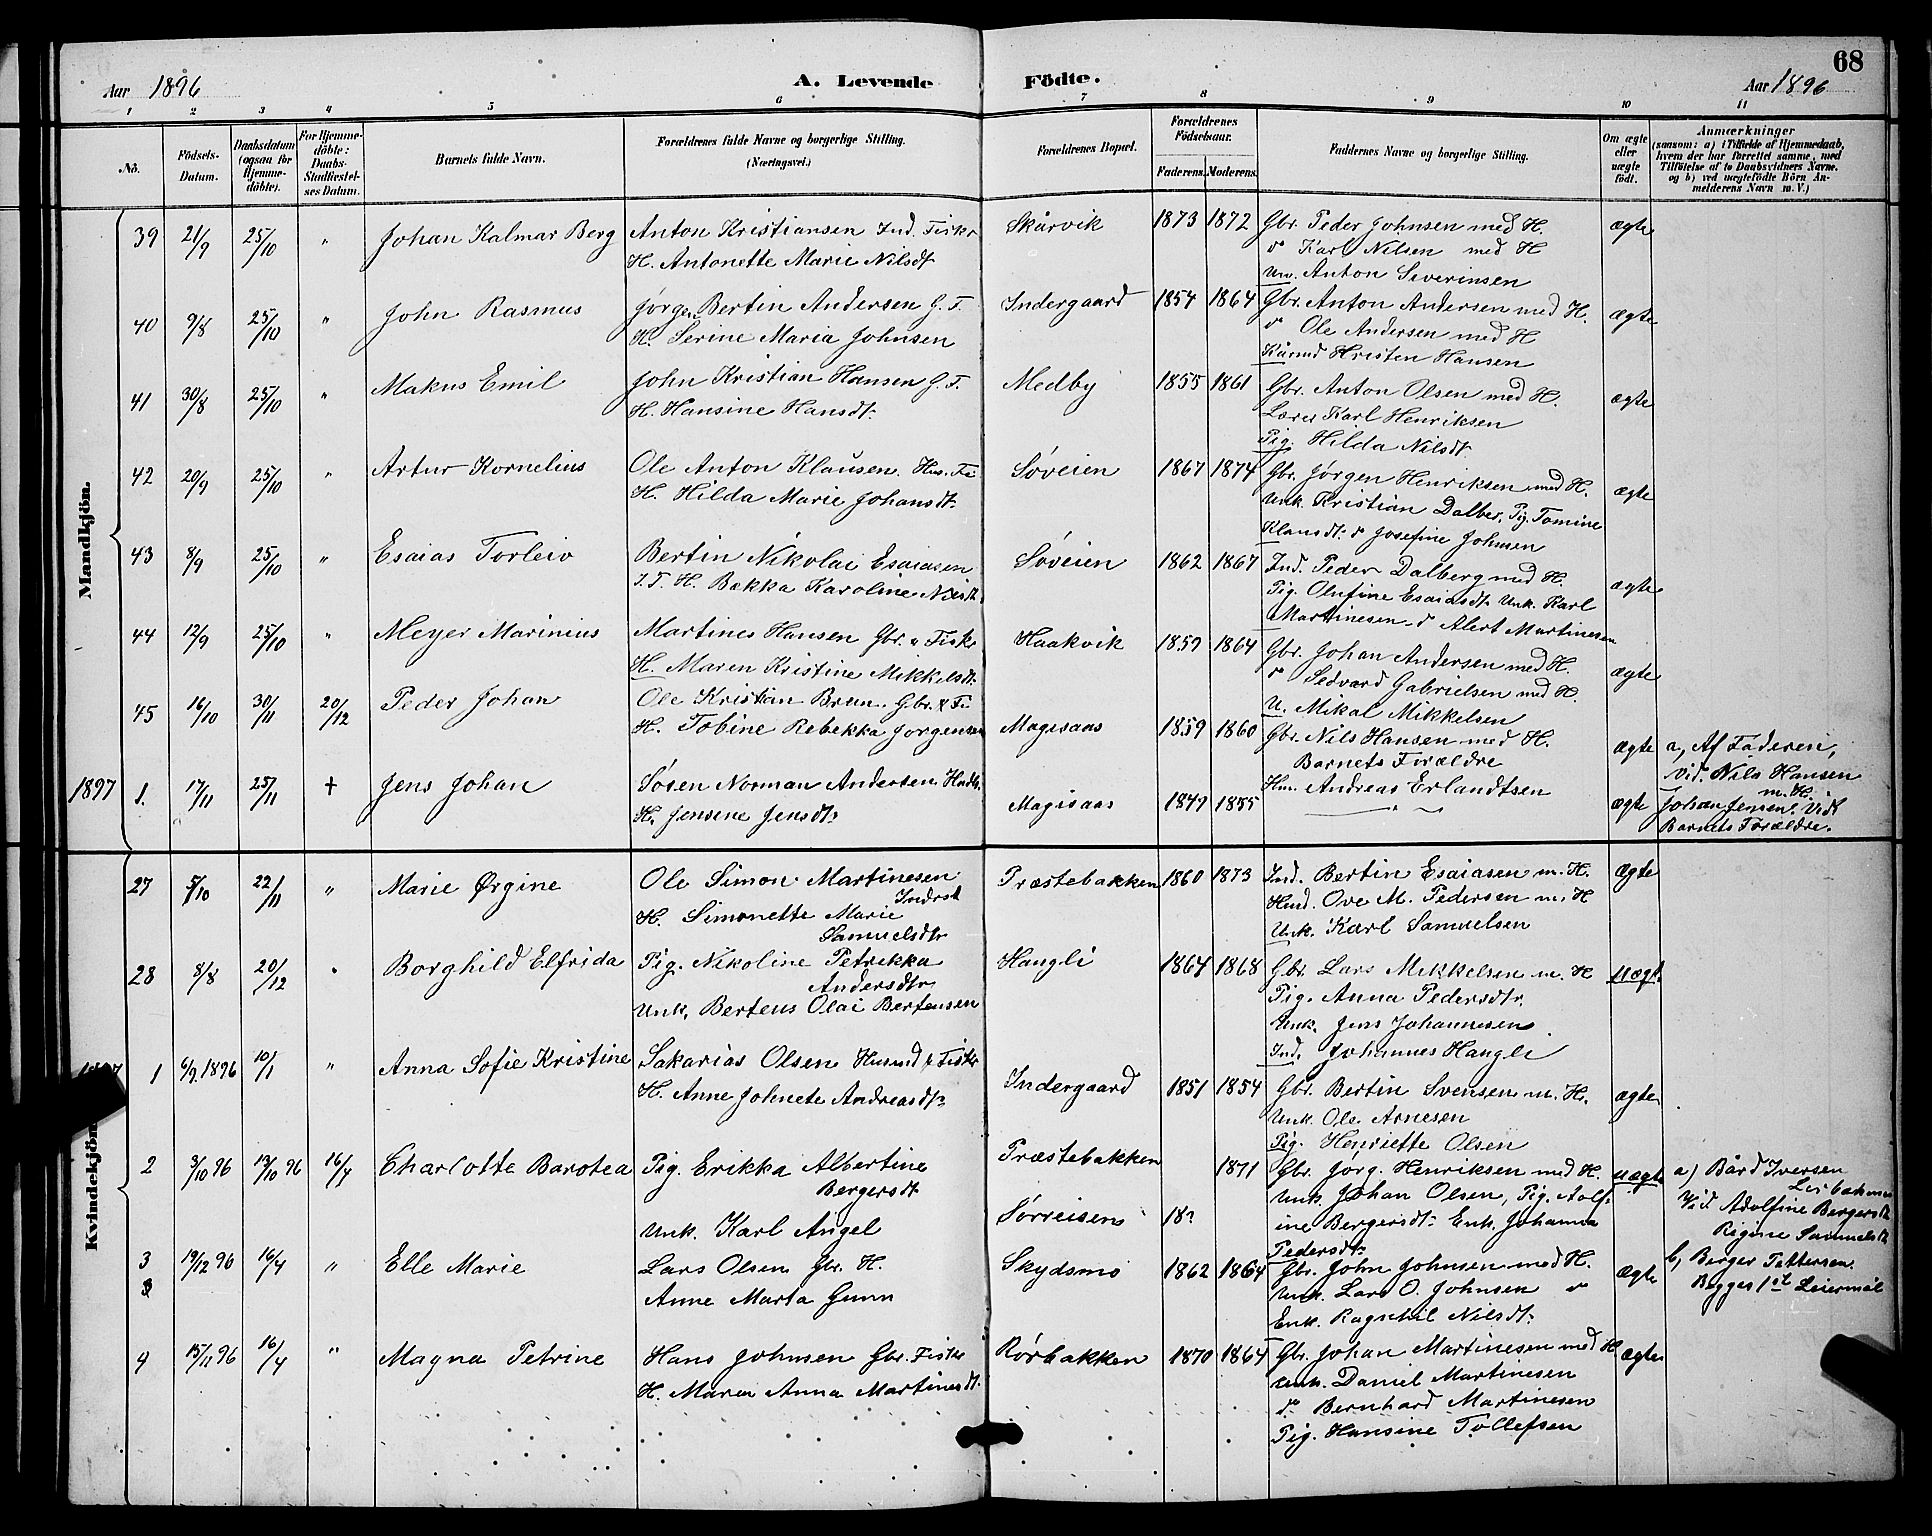 68
Aar 1896 A. Levende Födte. Aar 1896
1 2 3 4 5 6 7 8 9 10 11
No.
Födsels-Datum.
Daabsdatum (ogsaa for Hjemme-döbte).
For Hjemme-döbte: Daabs-Stadfæstel-ses Datum.
Barnets fulde Navn.
Forældrenes fulde Navne og borgerlige Stilling.
(Næringsvei.)
Forældrenes Bopæl.
Forældrenes Födselsaar.
Faderens. Moderens.
Faddernes Navne og borgerlige Stilling.
Om ægte eller uægte födt.
Anmærkninger
(saasom: a) i Tilfælde af Hjemmedaab,
hvem der har forrettet samme, med
Tilföielse af to Daabsvidners Navne.
og b) ved uægtefödte Börn An-
melderens Navn m. V.)
Mandkjön.
39 21/9 25/10 " Johan Kalmar Berg Anton Kristiansen Ind. Fisker Skårvik 1873 1872 Gbr. Peder Johnsen med H. ægte
H. Antonette Marie Nilsdt do Karl Nilsen med H
Un. Anton Severinsen
40 9/8 25/10 " John Rasmus Jørgen Bertin Andersen G. F. Indergaard 1854 1864 Gbr. Anton Andersen med H. ægte
H. Serine Maria Johnsen do Ole Andersen med H
Kårmd Kristen Hansen
41 30/8 25/10 " Makus Emil John Kristian Hansen G. F. Medby 1855 1861 Gbr. Anton Olsen med H. ægte
H. Hansine Hansdt. Lærer Karl Henriksen
Pig. Hilda Nilsdt
42 20/9 25/10 " Artur Kornelius Ole Anton Klausen Hus. Fi Søveien 1867 1874 Gbr. Jørgen Henriksen med H. ægte
H. Hilda Marie Johansdt. Unk. Kristian Dalber, Pig. Tomine
Klausdt. do Josefine Johnsen
43 8/9 25/10 " Esaias Torleiv Bertin Nikolai Esaiasen Søveien 1862 1867 Ind. Peder Dalberg med H. ægte
I. F. H. Bekka Karoline Nilsdt Pig. Olufine Esaiasdt. Unk. Karl
Martinesen do Alert Martinesen
44 12/9 25/10 " Meyer Marinius Martines Hansen Gbr. & Fisk. Haakvik 1859 1864 Gbr. Johan Andersen med H. ægte
H. Maren Kristine Mikkelsdt. do Sedvard Gabrielsen med H.
U. Mikal Mikkelsen
45 16/10 30/11 20/12 Peder Johan Ole Kristian Brun. Gbr. & Fi Magisaas 1859 1860 Gbr. Nils Hansen med H. ægte a, Af Faderen,
H. Tobine Rebekka Jørgensen Barnets Forældre Vid. Nils Hansen
Hm. Andreas Erlandtsen m. H.
1897 1. 17/11 25/11 + Jens Johan Søren Norman Andersen Husm. Magisaas 1849 1855 " " ægte Johan Jensen. Vidt
H. Jensine Jensdt. Barnets Forældre.
Kvindekjön
27 5/10 22/11 " Marie Ørgine Ole Simon Martinesen Præstebakken 1860 1873 Ind. Bertin Esaiasen m. H. ægte
Indrst
H. Simonette Marie Husd. Ove M. Pedersen m. H
Samuelsdtr Unk. Karl Samuelsen
28 8/8 20/12 " Borghild Elfrida Pig. Nikoline Petrikka Hangli 1864 1868 Gbr. Lars Mikkelsen m. H uægt
Andersdtr. Pig. Anna Pedersdtr.
Unk. Bertens Olai Bertensen Unk. Jens Johannesen
Ind. Johannes Hangli
1897 1 6/9 1896 10/1 " Anna Sofie Kristine Sakarias Olsen Husmd & Fisker Indergaard 1851 1854 Gbr. Bertin Svensen m. H. ægte
H. Anne Johnete Andreasdt. Unk. Ole Arnesen
Pig. Henriette Olsen
2 3/10 96 13/10 96 16/4 Charlotte Barotea Pig. Erikka Albertine Præstebakken 1871 Gbr. Jørg. Henriksen med H. uægte a) Bård Iversen
Bergersdt Unk Johan Olsen, Pig. Adolf- Leirbakmo
Unk. Karl Angel Sørreisen 18? ine Bergersdt. Enk. Johanna Vid. Adolfine Bergersdt
Pedersdt. Rigine Samuelsdt
3 19/12 96 16/4 " Elle Marie Lars Olsen Gbr. H. Skydsmo 1862 1864 Gbr. John Johnsen med H. ægte b, Berger Pettersen.
Anne Marta Gunn Unk. Lars O. Johnsen do Begges 1st Leiermål
Enk. Ragnhil Nilsdt.
4 15/11 96 16/4 " Magna Petrine Hans Johnsen Gbr. Fisker Rørbakken 1870 1864 Gbr. Johan Martinesen med H ægte
H. Maren Anna Martinesdt. Unk. Daniel Martinesen
do Bernhard Martinesen
Pig. Hansine Tollefsen